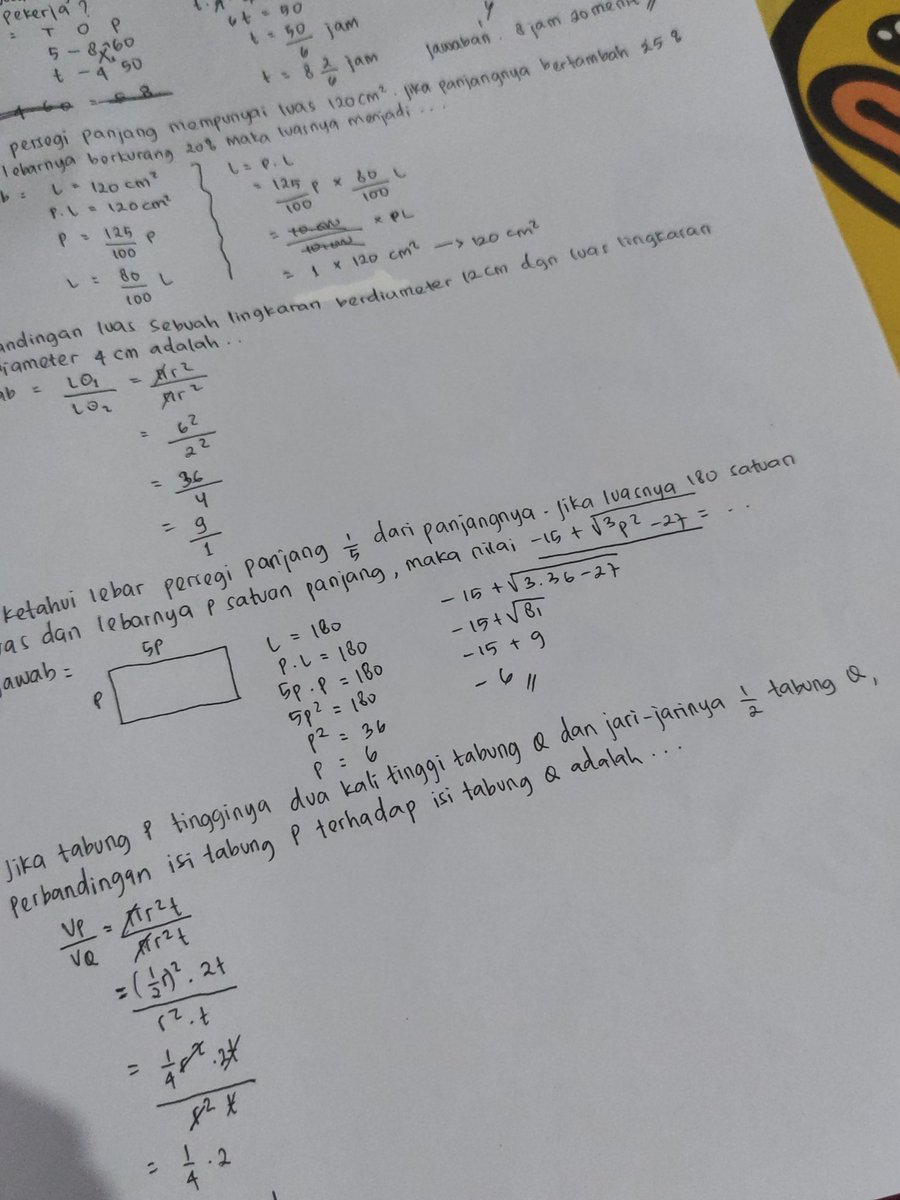 pekerja?
= T O P
5 - 8 60
t - 4 50
6t = 50
t = 50/6 jam
t = 8 2/6 jam
jawaban. 8 jam 20 menit //
persegi panjang mempunyai luas 120 cm². jika panjangnya bertambah 25%
lebarnya berkurang 20% maka luasnya menjadi...
b = L = 120 cm²
P.L = 120 cm²
P = 125/100 P
L = 80/100 L
L = P.L
= 125/100 P × 80/100 L
= 10.000/10.000 × PL
= 1 × 120 cm² -> 120 cm²
andingan luas sebuah lingkaran berdiameter 12 cm dgn luas lingkaran
iameter 4 cm adalah..
ab = LO₁/LO₂ = πr²/πr²
= 6²/2²
= 36/4
= 9/1
ketahui lebar persegi panjang 1/5 dari panjangnya. Jika luasnya 180 satuan
as dan lebarnya p satuan panjang, maka nilai -15 + √3p² - 27 = ...
awab =
5P
P
L = 180
P.L = 180
5p.p = 180
5p² = 180
p² = 36
p = 6
-15 + √3.36 - 27
-15 + √81
-15 + 9
-6 //
Jika tabung P tingginya dua kali tinggi tabung Q dan jari-jarinya 1/2 tabung Q,
perbandingan isi tabung P terhadap isi tabung Q adalah...
VP/VQ = πr²t/πr²t
= (1/2 r)² . 2t / r² . t
= 1/4 r² . 2t / r² t
= 1/4 . 2